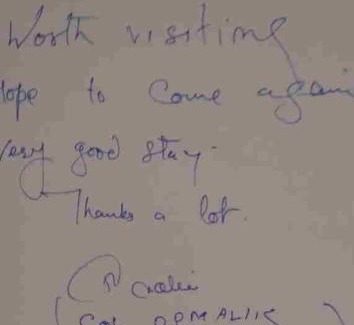 Worth visiting
lope to come again
very good stay.
Thanks a lot.